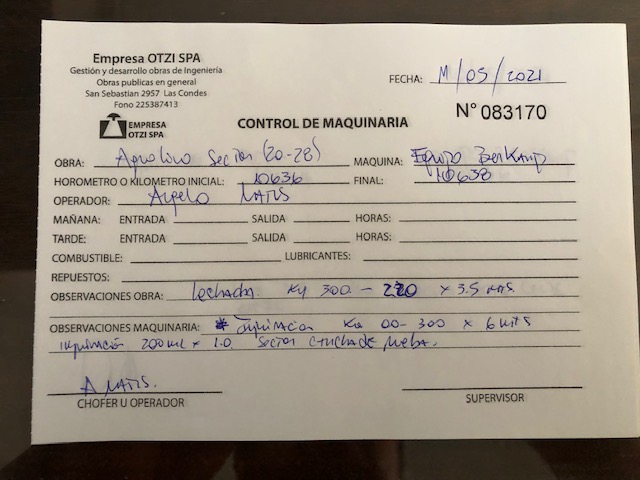 Empresa OTZI SPA
Gestión y desarrollo obras de Ingeniería
Obras publicas en general
San Sebastian 2957 - Las Condes
Fono 225387413
EMPRESA
OTZI SPA
FECHA: 11/05/2021
CONTROL DE MAQUINARIA
N° 083170
OBRA: Sector (20-28) MAQUINA: Equipo
HOROMETRO O KILOMETRO INICIAL: 10636 FINAL: 10638
OPERADOR: Angelo
MAÑANA: ENTRADA SALIDA HORAS:
TARDE: ENTRADA SALIDA HORAS:
COMBUSTIBLE: LUBRICANTES:
REPUESTOS:
OBSERVACIONES OBRA: Lechada. KM 300 - 220 x 3.5 mts.
OBSERVACIONES MAQUINARIA: * Imprimacion KM 00-300 x 6 mts
Imprimacion 200 ml x 1.0 Sector
CHOFER U OPERADOR
SUPERVISOR